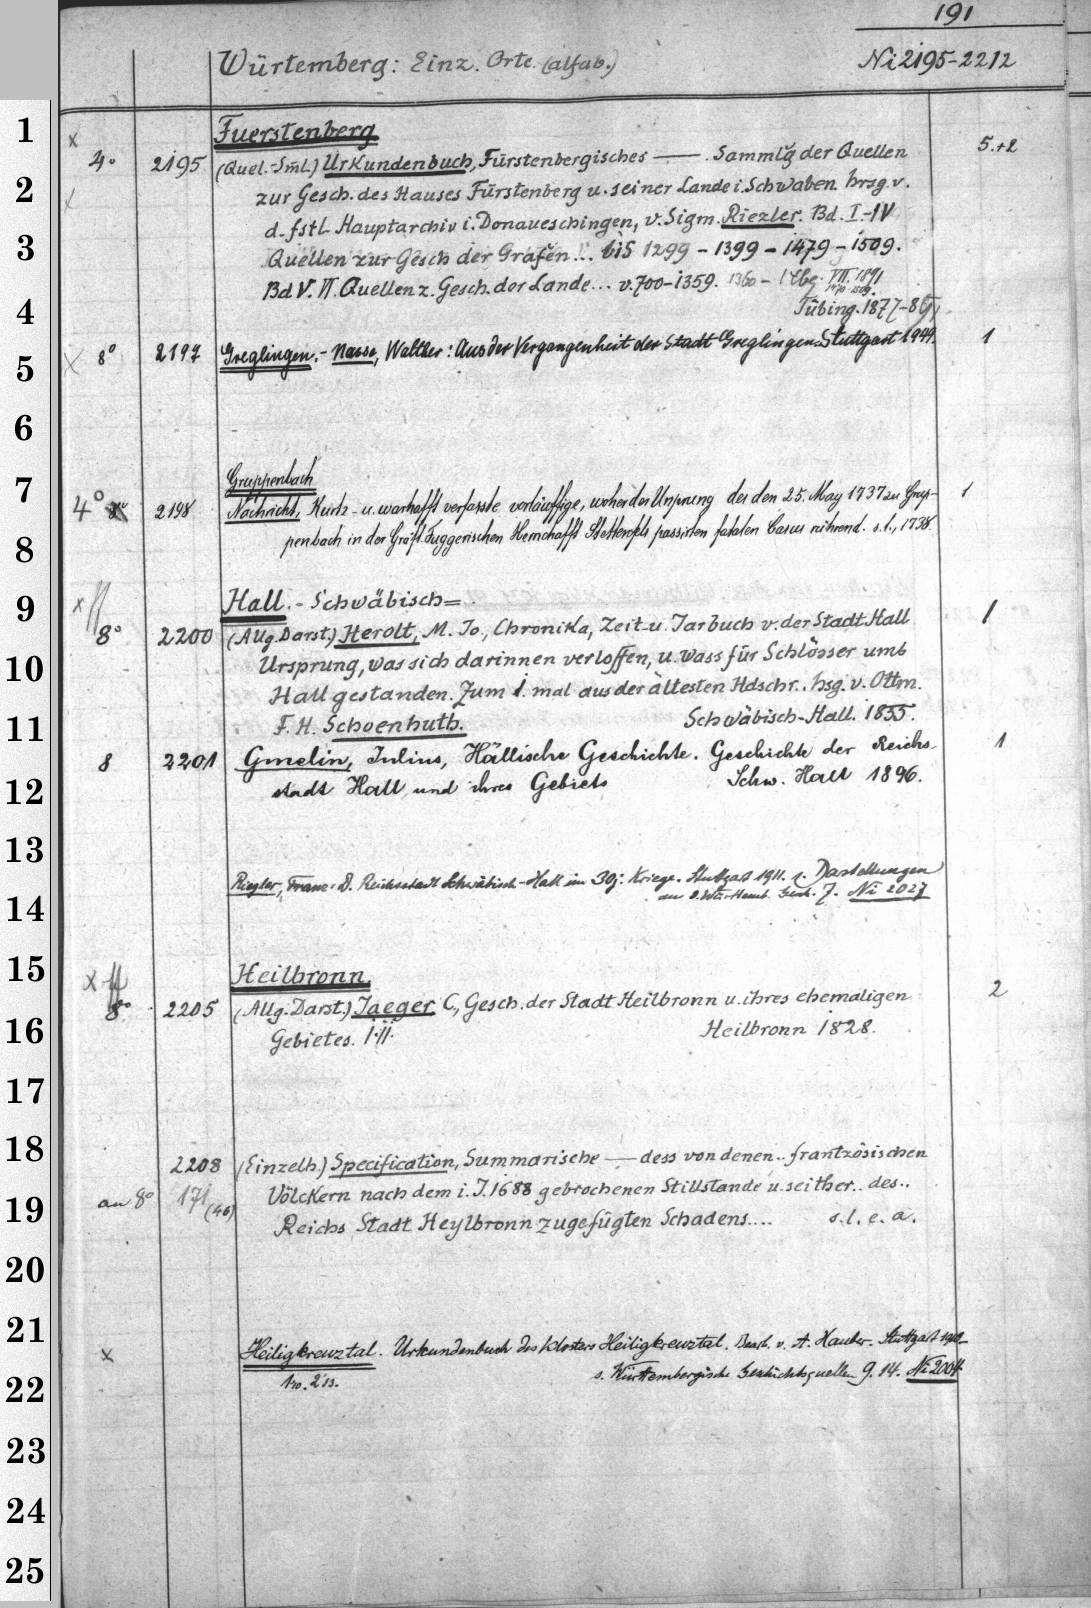 191
Würtemberg: Einz. Orte. (alfab.) Ni 2195-2212
Fuerstenberg
x 4° 2195 (Quel.-Sml.) Urkundenbuch, Fürstenbergisches —— . Sammlg der Quellen 5.+2
zur Gesch. des Hauses Fürstenberg u. seiner Lande i. Schwaben hrsg. v.
d. fstl. Hauptarchiv i. Donaueschingen, v. Sigm. Riezler. Bd. I-IV
Quellen zur Gesch der Grafen... bis 1299 - 1399 - 1479 - 1509.
Bd V. VI. Quellen z. Gesch. der Lande... v. 700-1359. 1360 - VII. 1891
1470-1509.
Tübing. 1877-89
x 8° 2197 Greglingen.- Nasse, Walther: Aus der Vergangenheit der Stadt Greglingen. Stuttgart 1949. 1
Gruppenbach
4° 8° 2198 Nachricht, Kurtz- u. warhafft verfasste vorläuffige, woher der Ursprung des den 25. May 1737 zu Grup- 1
penbach in der Gräfl. Fuggerischen Herrschafft Stettenfels passirten fatalen Casus rührend. s.l., 1738.
x ff Hall.- Schwäbisch=
8° 2200 (Allg. Darst.) Herolt, M. Jo., Chronika, Zeit- u. Jarbuch v. der Stadt Hall 1
Ursprung, was sich darinnen verloffen, u. wass für Schlösser umb
Hall gestanden. Zum 1. mal aus der ältesten Hdschr. hsg. v. Ottm.
F. H. Schoenhuth. Schwäbisch-Hall. 1855.
8 2201 Gmelin, Julius, Hällische Geschichte. Geschichte der Reichs- 1
stadt Hall und ihres Gebiets Schw. Hall 1896.
Riegler, Franz: D. Reichsstadt Schwäbisch-Hall im 30j. Kriege. Stuttgart 1911. s. Darstellungen
aus d. Württemb. Gesch. 7. Ni 2027
x ff Heilbronn
8° 2205 (Allg. Darst.) Jaeger C., Gesch. der Stadt Heilbronn u. ihres ehemaligen 2
Gebietes. I. II. Heilbronn 1828.
2208 (Einzelh.) Specification, Summarische —— dess von denen.. frantzösischen
an 8° 171 (46) Völckern nach dem i. J. 1688 gebrochenen Stillstande u. seither.. des..
Reichs Stadt Heylbronn zugefügten Schadens.... s. l. e. a.
x Heiligkreuztal. Urkundenbuch des Klosters Heiligkreuztal. Bearb. v. A. Hauber. Stuttgart
s. Württembergische Geschichtsquellen 9. 14. Ni 2004.